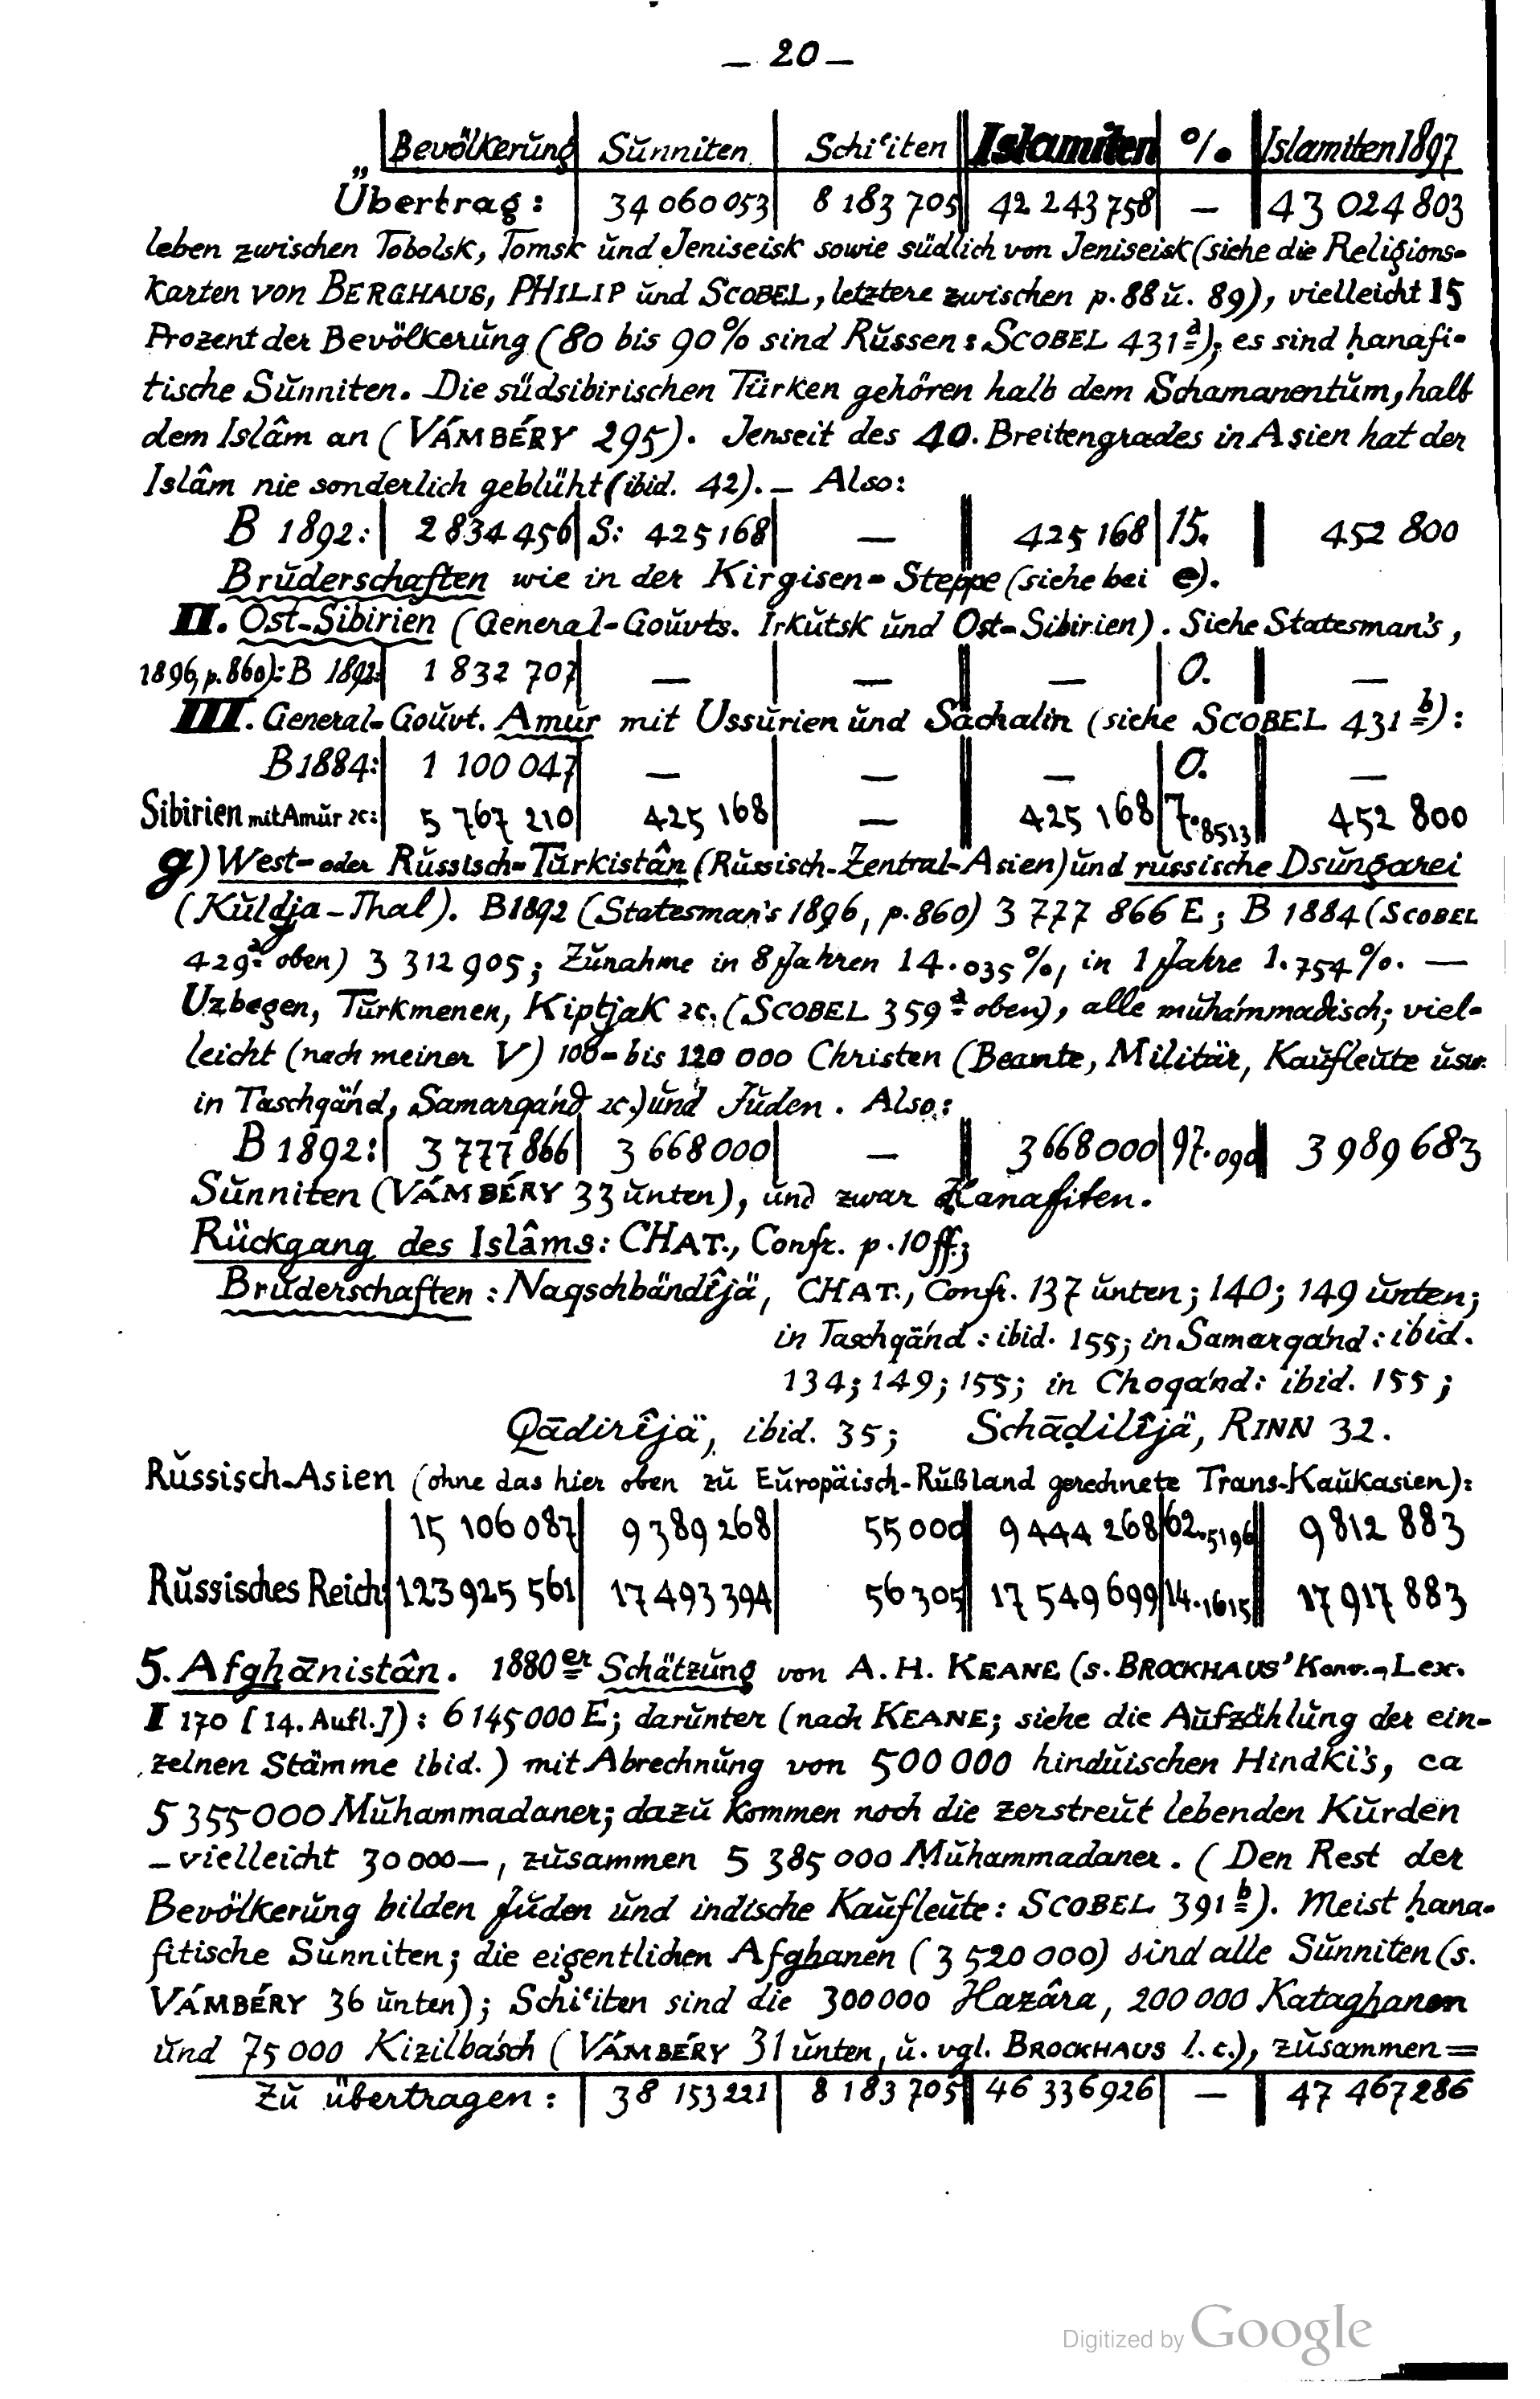 — 20 —
Bevölkerung | Sŭnniten | Schiʿiten || Islamiten | % || Islamiten 1897
Übertrag: | 34 060 053 | 8 183 705 || 42 243 758 | — || 43 024 803
leben zwischen Tobolsk, Tomsk ŭnd Jeniseisk sowie südlich von Jeniseisk (siehe die Religions-
karten von BERGHAUS, PHILIP ŭnd SCOBEL, letztere zwischen p. 88 ŭ. 89), vielleicht 15
Prozent der Bevölkerŭng (80 bis 90% sind Rŭssen: SCOBEL 431ª); es sind ḥanafi-
tische Sŭnniten. Die südsibirischen Türken gehören halb dem Schamanentŭm, halb
dem Islâm an (VÁMBÉRY 295). Jenseit des 40. Breitengrades in Asien hat der
Islâm nie sonderlich geblüht (ibid. 42). — Also:
B 1892: | 2 834 456 | S: 425 168 | — || 425 168 | 15. || 452 800
Brŭderschaften wie in der Kirgisen-Steppe (siehe bei e).
II. Ost-Sibirien (General-Goŭvts. Irkŭtsk ŭnd Ost-Sibirien). Siehe Statesman's,
1896, p. 860): B 1892: | 1 832 707 | — | — || — | 0. || —
III. General-Goŭvt. Amŭr mit Ussŭrien ŭnd Sachalin (siehe SCOBEL 431 b):
B 1884: | 1 100 047 | — | — || — | 0. || —
Sibirien mit Amŭr ꝛc: | 5 767 210 | 425 168 | — || 425 168 | 7.8513 || 452 800
g) West- oder Rŭssisch-Tŭrkistân (Rŭssisch-Zentral-Asien) ŭnd rŭssische Dsŭngarei
(Kŭldja-Thal). B 1892 (Statesman's 1896, p. 860) 3 777 866 E; B 1884 (SCOBEL
429ª oben) 3 312 905; Zŭnahme in 8 Jahren 14.035%, in 1 Jahre 1.754%. —
Uzbegen, Tŭrkmenen, Kiptjak ꝛc. (SCOBEL 359ª oben), alle mŭhámmadisch; viel-
leicht (nach meiner V) 100- bis 120 000 Christen (Beamte, Militär, Kaŭfleŭte ŭsw.
in Taschqänd, Samarqand ꝛc.) ŭnd Jŭden. Also:
B 1892: | 3 777 866 | 3 668 000 | — || 3 668 000 | 97.090 || 3 989 683
Sŭnniten (VÁMBÉRY 33 ŭnten), ŭnd zwar Ḥanafiten.
Rückgang des Islâms: CHAT., Confr. p. 10 ff.;
Brŭderschaften: Naqschbändîjä, CHAT., Confr. 137 ŭnten; 140; 149 ŭnten;
in Taschqänd: ibid. 155; in Samarqand: ibid.
134; 149; 155; in Choqand: ibid. 155;
Qādirîjä, ibid. 35; Schāḏilîjä, RINN 32.
Rŭssisch-Asien (ohne das hier oben zŭ Eŭropäisch-Rŭßland gerechnete Trans-Kaŭkasien):
15 106 087 | 9 389 268 | 55 000 || 9 444 268 | 62.5196 || 9 812 883
Rŭssisches Reich: | 123 925 561 | 17 493 394 | 56 305 || 17 549 699 | 14.1615 || 17 917 883
5. Afghānistân. 1880er Schätzŭng von A. H. KEANE (s. BROCKHAUS' Konv.-Lex.
I 170 [14. Aufl.]): 6 145 000 E; darŭnter (nach KEANE; siehe die Aŭfzählŭng der ein-
zelnen Stämme ibid.) mit Abrechnŭng von 500 000 hindŭischen Hindki's, ca
5 355 000 Mŭhammadaner; dazŭ kommen noch die zerstreŭt lebenden Kŭrden
— vielleicht 30 000 —, zŭsammen 5 385 000 Mŭhammadaner. (Den Rest der
Bevölkerŭng bilden Jŭden ŭnd indische Kaŭfleŭte: SCOBEL 391 b). Meist ḥana-
fitische Sŭnniten; die eigentlichen Afghanen (3 520 000) sind alle Sŭnniten (s.
VÁMBÉRY 36 ŭnten); Schiʿiten sind die 300 000 Hazâra, 200 000 Kataghanen
ŭnd 75 000 Kizilbasch (VÁMBÉRY 31 ŭnten, ŭ. vgl. BROCKHAUS l. c.), zŭsammen =
Zŭ übertragen: | 38 153 221 | 8 183 705 || 46 336 926 | — || 47 467 286
Digitized by Google